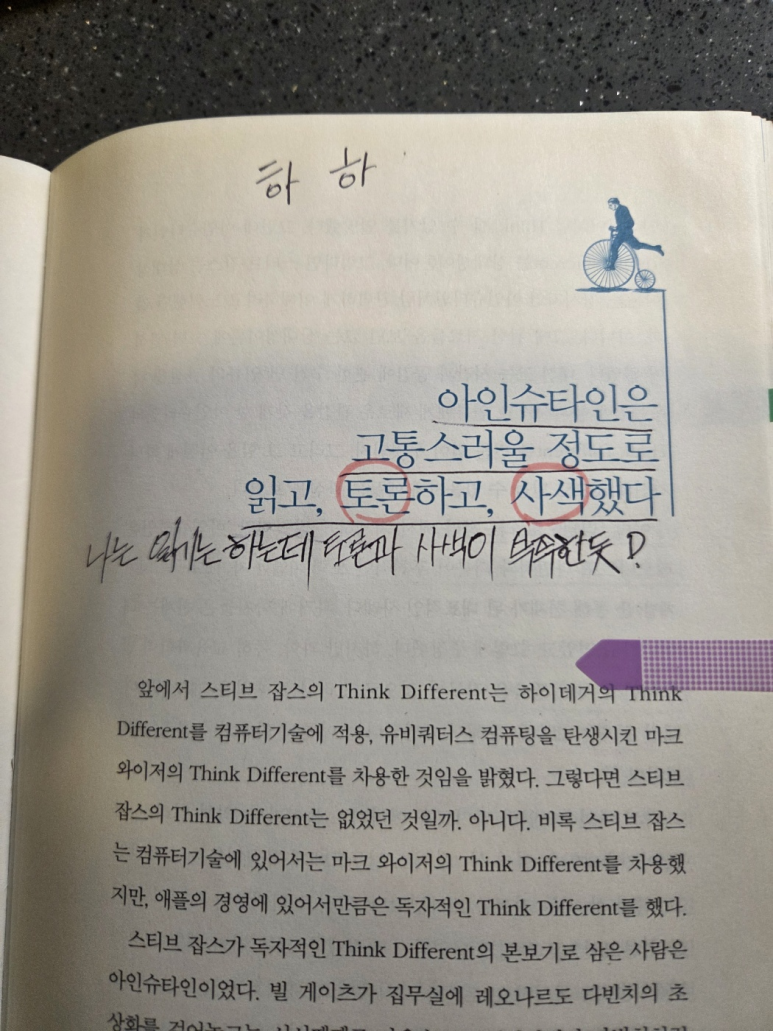 하 하
아인슈타인은
고통스러울 정도로
읽고, 토론하고, 사색했다
나는 읽기는 하는데 토론과 사색이 부족한듯!
앞에서 스티브 잡스의 Think Different는 하이데거의 Think
Different를 컴퓨터기술에 적용, 유비쿼터스 컴퓨팅을 탄생시킨 마크
와이저의 Think Different를 차용한 것임을 밝혔다. 그렇다면 스티브
잡스의 Think Different는 없었던 것일까. 아니다. 비록 스티브 잡스
는 컴퓨터기술에 있어서는 마크 와이저의 Think Different를 차용했
지만, 애플의 경영에 있어서만큼은 독자적인 Think Different를 했다.
스티브 잡스가 독자적인 Think Different의 본보기로 삼은 사람은
아인슈타인이었다. 빌 게이츠가 집무실에 레오나르도 다빈치의 초